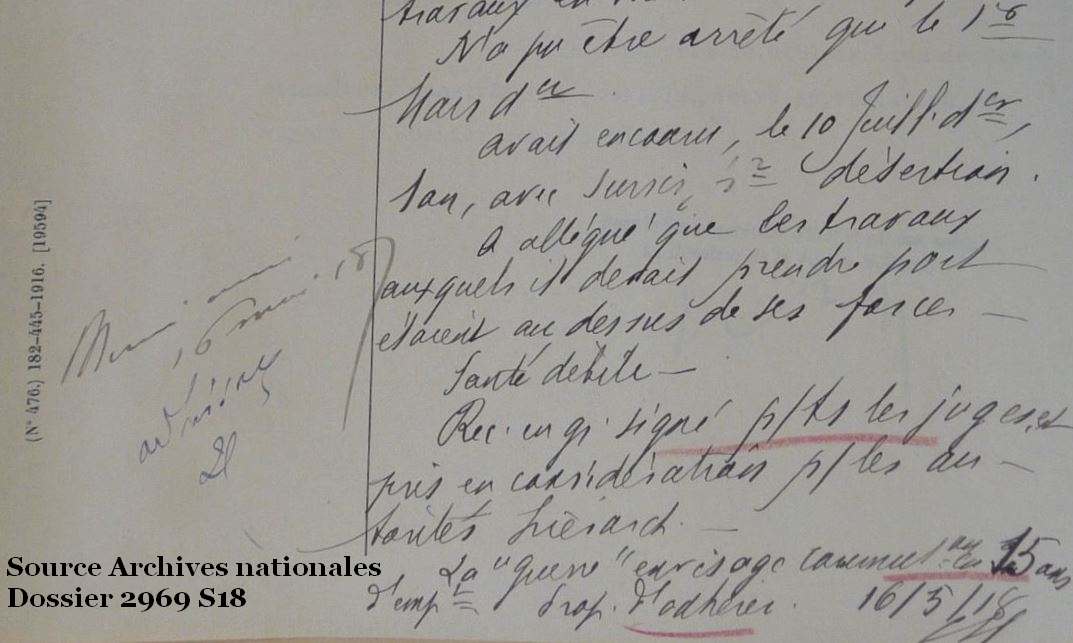 travaux en
N'a pu être arrêté que le 1er
Mars der
avait encouru, le 10 Juill. der,
1 an, avec sursis, pr désertion.
A allégué que les travaux
auxquels il devait prendre part
étaient au dessus de ses forces —
Santé débile —
Rec. en gr. signé p/ ts les juges, et
pris en considération p/ les au-
torités hiérarch. —
La "Guerre" envisage commut on en 15 ans
d'emp t Prop. d'adhérer. 16/5/18
16 mai 18
(N° 476.) 182-445-1916. [19594]
Source Archives nationales
Dossier 2969 S18